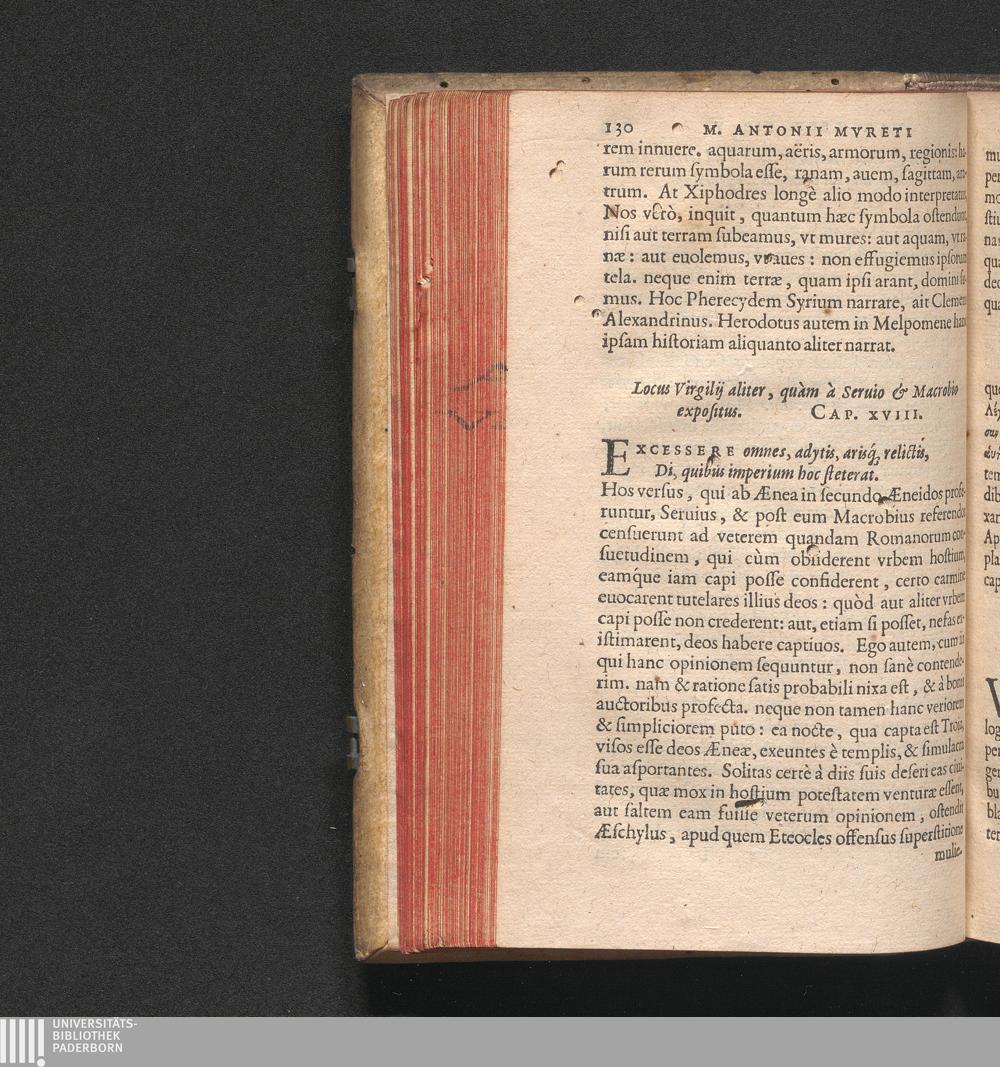 130 M. ANTONII MVRETI
rem innuere. aquarum, aëris, armorum, regionis: ha-
rum rerum ſymbola eſſe, ranam, auem, ſagittam, ara-
trum. At Xiphodres longè alio modo interpretatur.
Nos verò, inquit, quantum hæc ſymbola oſtendunt,
niſi aut terram ſubeamus, vt mures: aut aquam, vt ra-
næ: aut euolemus, vt aues: non effugiemus ipſorum
tela. neque enim terræ, quam ipſi arant, domini ſu-
mus. Hoc Pherecydem Syrium narrare, ait Clemens
Alexandrinus. Herodotus autem in Melpomene hanc
ipſam hiſtoriam aliquanto aliter narrat.
Locus Virgilij aliter, quàm à Seruio & Macrobio
expoſitus. CAP. XVIII.
EXCESSERE omnes, adytis, arisq́, relictis,
Di, quibus imperium hoc ſteterat.
Hos verſus, qui ab Ænea in ſecundo Æneidos profe-
runtur, Seruius, & poſt eum Macrobius referendos
cenſuerunt ad veterem quandam Romanorum con-
ſuetudinem, qui cùm obſiderent vrbem hoſtium,
eamq́ue iam capi poſſe confiderent, certo carmine
euocarent tutelares illius deos: quòd aut aliter vrbem
capi poſſe non crederent: aut, etiam ſi poſſet, nefas ex-
iſtimarent, deos habere captiuos. Ego autem, cum iis
qui hanc opinionem ſequuntur, non ſanè contende-
rim. nam & ratione ſatis probabili nixa eſt, & à bonis
auctoribus profecta. neque non tamen hanc veriorem
& ſimpliciorem puto: ea nocte, qua capta eſt Troia,
viſos eſſe deos Æneæ, exeuntes è templis, & ſimulacra
ſua aſportantes. Solitas certè à diis ſuis deſeri eas ciui-
tates, quæ mox in hoſtium poteſtatem venturæ eſſent,
aut ſaltem eam fuiſſe veterum opinionem, oſtendit
Æſchylus, apud quem Eteocles offenſus ſuperſtitione
mulie-
UNIVERSITÄTS-
BIBLIOTHEK
PADERBORN